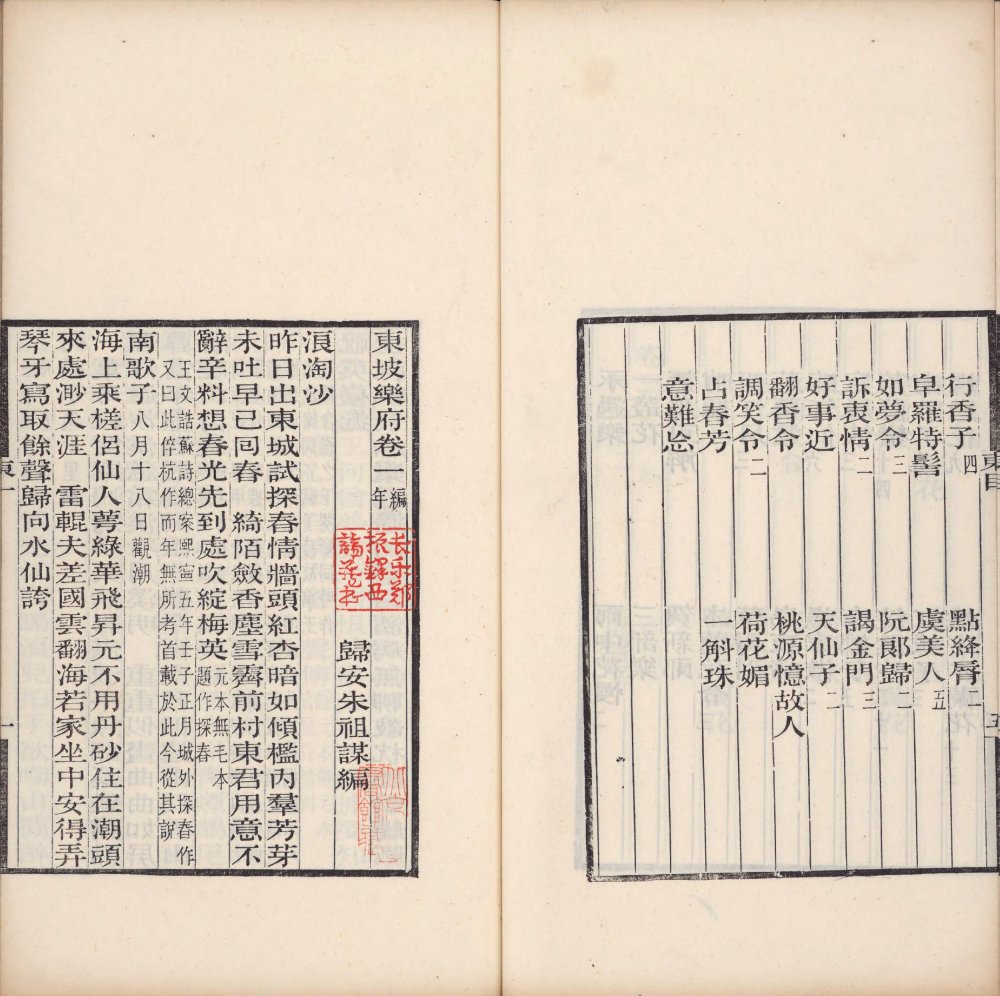 行香子四 點絳脣二
皁羅特髻 虞美人五
如夢令三 阮郞歸二
訴衷情二 謁金門三
好事近 天仙子二
翻香令 桃源憶故人
調笑令二 荷花媚
占春芳 一斛珠
意難忘
東目 五
東坡樂府卷一 編年
長樂鄭
振鐸西
諦藏書
歸安朱祖謀編
浪淘沙
昨日出東城試探春情牆頭紅杏暗如傾檻內羣芳芽
未吐早已囘春 綺陌斂香塵雪霽前村東君用意不
辭辛料想春光先到處吹綻梅英元本無毛本
題作探春
王文誥蘇詩總案熙甯五年壬子正月城外探春作
又曰此倅杭作而年無所考首載於此今從其說
南歌子八月十八日觀潮
海上乘槎侶仙人蕚綠華飛昇元不用丹砂住在潮頭
來處渺天涯 雷輥夫差國雲翻海若家坐中安得弄
琴牙寫取餘聲歸向水仙誇
東一 一